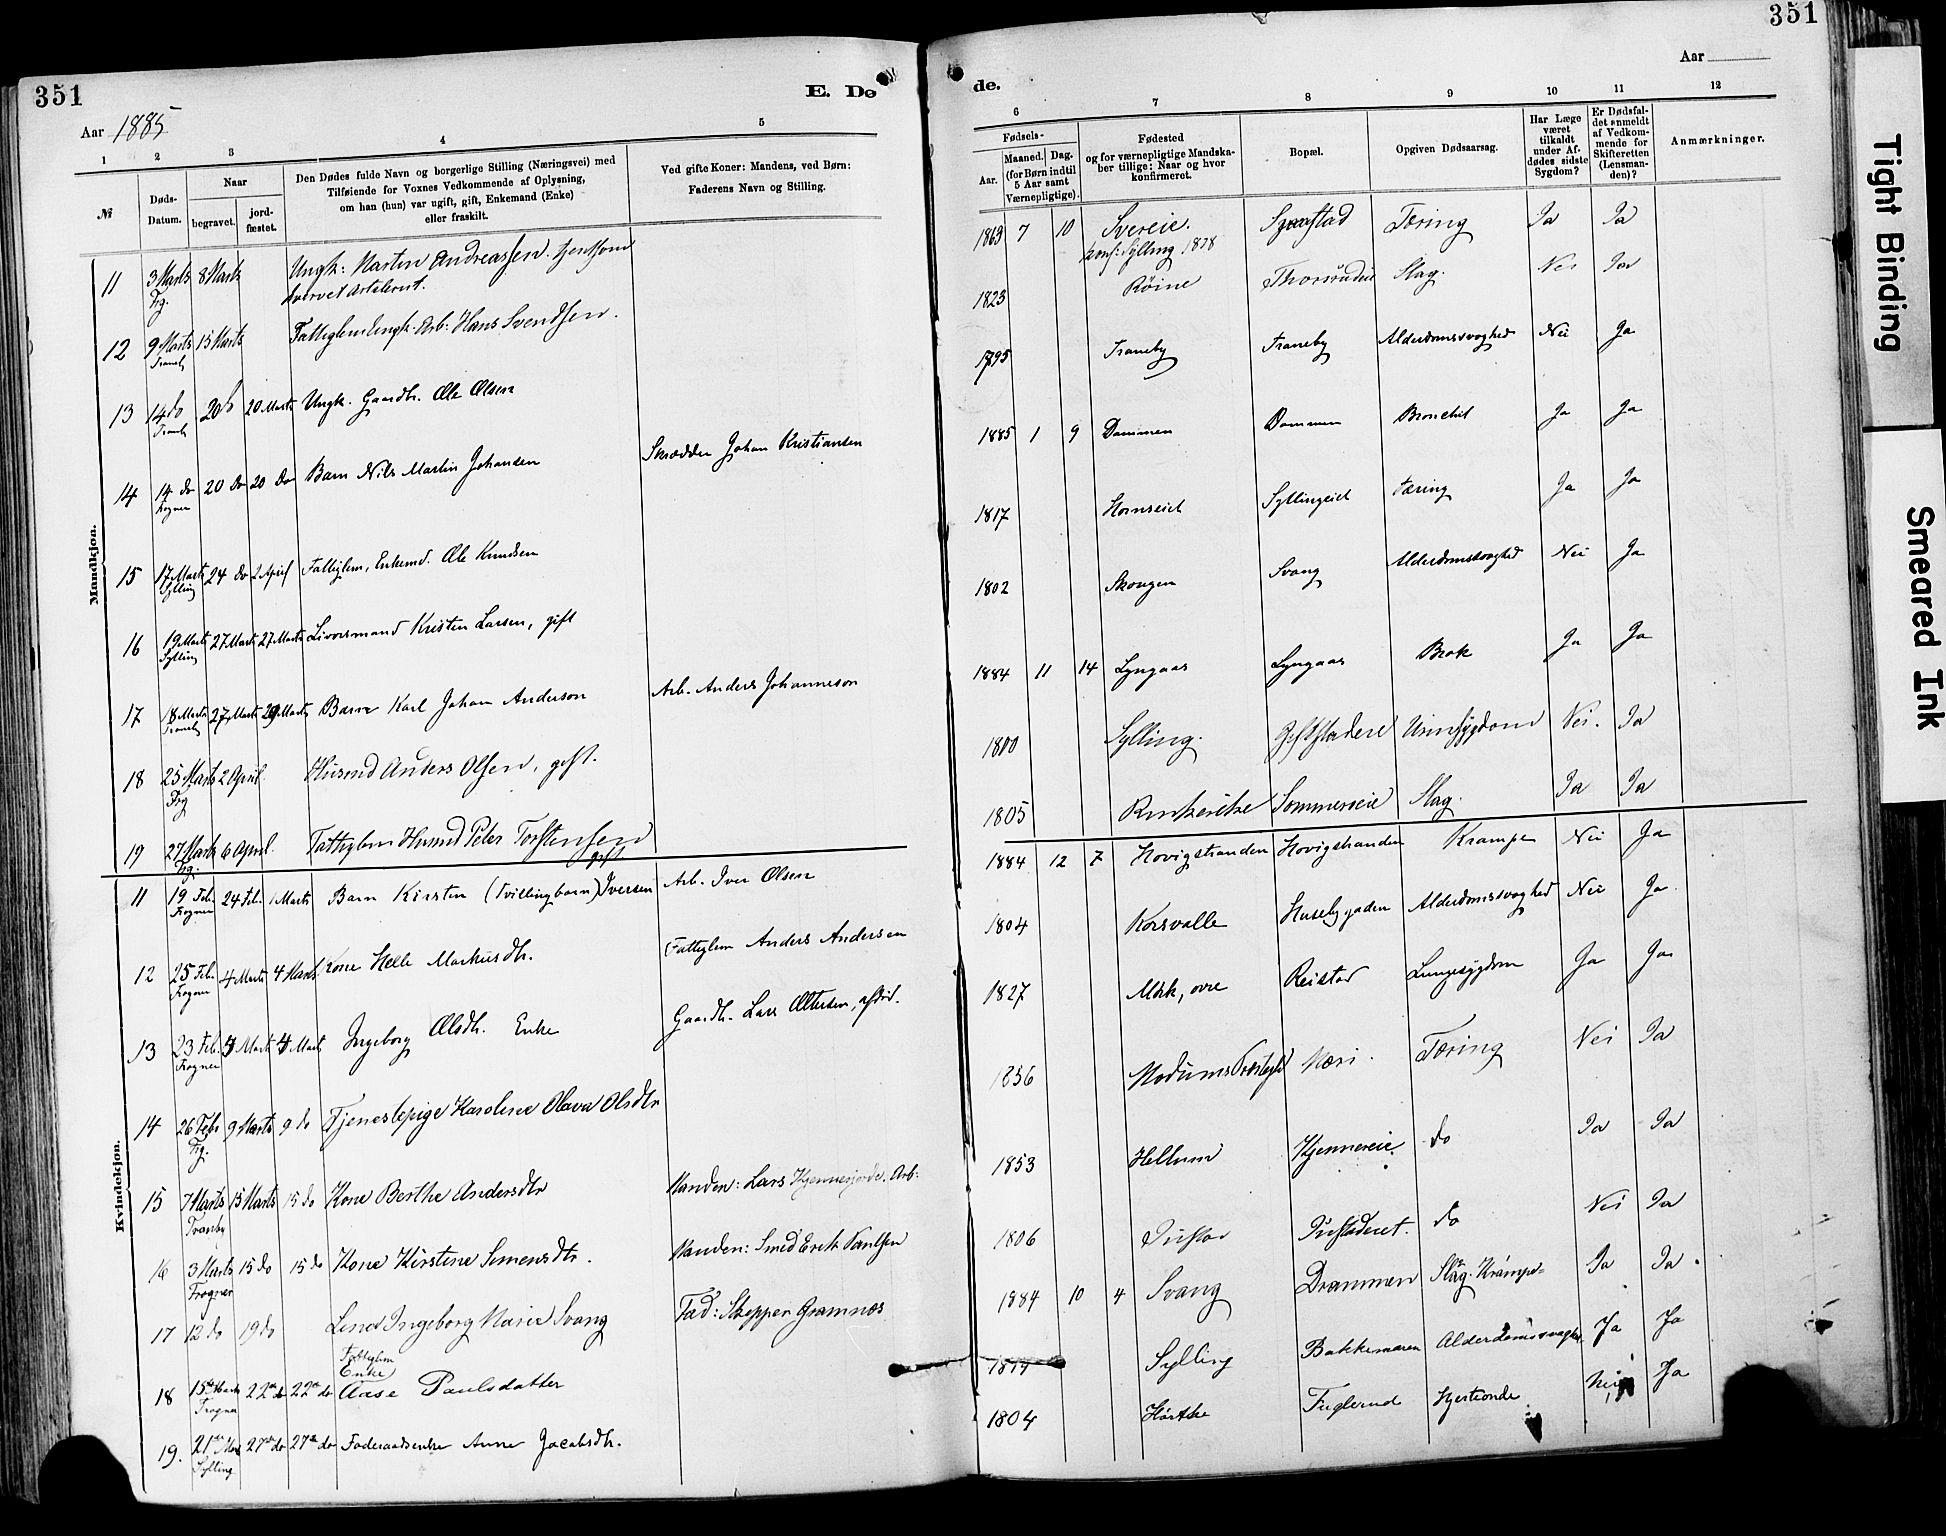 351
E. Dø
Aar 1885
1 2 3 4 5
№
Døds-
Datum.
Naar
begravet.
jord-
fæstet.
Den Dødes fulde Navn og borgerlige Stilling (Næringsvei) med
Tilføiende for Voxnes Vedkommende af Oplysning,
om han (hun) var ugift, gift, Enkemand (Enke)
eller fraskilt.
Ved gifte Koner: Mandens, ved Børn:
Faderens Navn og Stilling.
Mandkjøn.
11 3 Marts 8 Marts Ungk: Martin Andreassen.
Frg.
12 9 Marts 15 Marts Fattiglem Ungk. Arb: Hans Svendsen.
Tranby
13 14 do 20 do 20 Marts Ungk. Gaardbr. Ole Olsen
Tranby
14 14 do 20 do 20 do Barn Nils Martin Johansen Skrædder Johan Kristiansen
Frogner
15 17 Marts 24 do 2 April Fattiglem, Enkemd. Ole Knudsen
Sylling
16 19 Marts 27 Marts 27 Marts Livørsmand Kristen Larsen, gift
Sylling
17 18 Marts 27 Marts 29 Marts Barn Karl Johan Anderson Arb. Anders Johanneson
Tranby
18 25 Marts 2 April. Husmd Anders Olsen, gift.
Frg
19 27 Marts 6 April. Fattiglem Husmd Peter Torstensen
Frg. gift
Kvindekjøn.
11 19 Feb. 24 Feb. 1 Marts Barn Kirsten (Tvillingbarn) Iversen Arb. Iver Olsen
Frogner
12 25 Feb. 4 Marts 4 Marts Kone Helle Markusdtr. Fattiglem Anders Andersen
Frogner
13 23 Feb. 4 Marts 4 Marts Ingeborg Olsdtr. Enke Gaardbr. Lars Ottersen, afdød.
Frogner
14 26 Febr 9 Marts 9 do Tjenestepige Karoline Olava Olsdtr
Frg.
15 7 Marts 15 Marts 15 do Kone Berthe Andersdtr Manden: Lars Kjennerjorde. Arb:
Tranby
16 3 Marts 15 do 15 do Kone Kirstine Simensdtr. Manden: Smed Erik Paulsen
Frogner
17 12 do 19 do Lina Ingeborg Marie Svang Fad: Skipper Gramnæs
Fattiglem
Enke
18 15de Marts 22de do 22de do Aase Paulsdatter
Frogner
19. 21de Mar 27de do 27de do Føderaadsenke Anne Jacobsdtr.
Sylling
351
de.
Aar
6 7 8 9 10 11 12
Fødsels-
Aar.
Maaned.
Dag.
(for Børn indtil
5 Aar samt
Værnepligtige).
Fødested
og for værnepligtige Mandska-
ber tillige: Naar og hvor
konfirmeret.
Bopæl.
Opgiven Dødsaarsag.
Har Læge
været
tilkaldt
under Af-
dødes sidste
Sygdom?
Er Dødsfal-
det anmeldt
af Vedkom-
mende for
Skifteretten
(Lensman-
den)?
Anmærkninger.
1863 7 10 Svereie. Tæring Ja Ja
konf: Sylling 1878
1823 Røine Thorsrudeie Slag. Nei Ja
1795 Traneby Traneby Alderdomssvaghed Nei Ja
1885 1 9 Dammen Dammen Bronchit Ja Ja
1817 Hornseiet Syllingeiet Tæring Ja Ja
1802 Skougen Svang Alderdomssvaghed Nei Ja
1884 11 14 Lyngaas Lyngaas Brok Ja Ja
1800 Sylling. Urinsygdom Nei. Ja
1805 Ringerike Sommerseie Slag. Ja Ja
1884 12 7 Hovigstranden Hovigstranden Krampe Nei Ja
1804 Korsvolle Husebygaden Alderdomssvaghed Nei Ja
1827 Mørk, øvre Reistad Lungesygdom Ja Ja
1856 Modums Præstegjeld Næri. Tæring Nei Ja
1853 Hellum Kjennereie. do Ja Ja
1806 Justad Justaderet. do Nei Ja
1884 10 4 Svang Drammen Slag. Krampe- Ja Ja.
Sylling Bakkemaren Alderdomssvaghed Ja Ja
1804 Hørtke Fuglerud Hjerteonde Nei Ja
Tight Binding
Smeared Ink